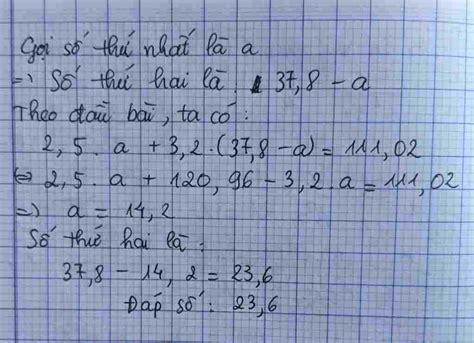 Gọi số thứ nhất là a
=> Số thứ hai là 37,8 - a
Theo đầu bài, ta có:
2,5. a + 3,2.(37,8-a) = 111,02
<=> 2,5. a + 120,96 - 3,2. a = 111,02
=> a = 14,2
Số thứ hai là:
37,8 - 14,2 = 23,6
Đáp số: 23,6